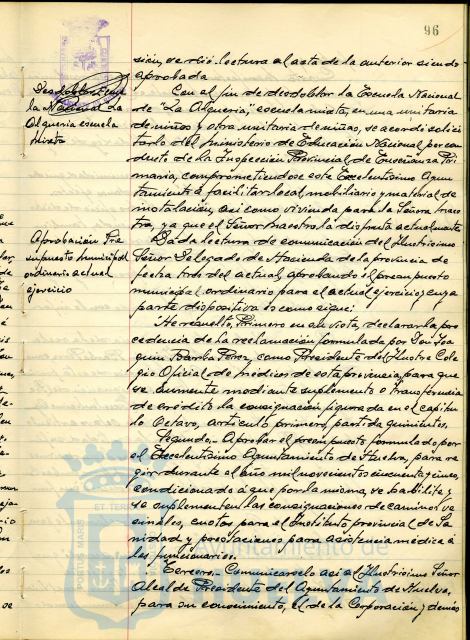 96
sión, se dió lectura al acta de la anterior siendo
aprobada
Desdoblar Escue
la Nacional La
Alquería escuela
mixta
Con el fin de desdoblar la Escuela Nacional
de "La Alquería", escuela mixta, en una unitaria
de niños y otra unitaria de niñas, se acordó solici
tarlo del Ministerio de Educación Nacional por con
ducto de la Inspección Provincial de Enseñanza Pri
maria, comprometiéndose este Excelentísimo Ayun
tamiento á facilitar local, mobiliario y material de
instalación, así como vivienda para la Señora Maes
tra, ya que el Señor Maestro la disfruta actualmente
Aprobación Pre
supuesto municipal
ordinario actual
ejercicio
Dada lectura de comunicación del Ilustrísimo
Señor Delegado de Hacienda de la provincia de
fecha tres del actual, aprobando el presupuesto
municipal ordinario para el actual ejercicio, cuya
parte dispositiva es como sigue:
He resuelto, Primero en su vista, declarar la pro
cedencia de la reclamación formulada por Don Joa
quín Barba Pérez, como Presidente del Ilustre Cole
gio Oficial de médicos de esta provincia, para que
se aumente mediante suplemento o transferencia
de crédito la consignación figurada en el capítu
lo Octavo, artículo primero, partida quinientos.
Segundo.- Aprobar el presupuesto formulado por
el Excelentísimo Ayuntamiento de Huelva, para re
gir durante el año mil novecientos cincuenta y cinco,
condicionado á que por la misma, se habilite y
se suplementen las consignaciones de caminos ve
cinales, cuotas para el Instituto provincial de Sa
nidad y prestaciones para asistencia médica á
los funcionarios.
Tercero.- Comunicárselo así al Ilustrísimo Señor
Alcalde Presidente del Ayuntamiento de Huelva,
para su conocimiento, el de la Corporación y demás
PORTUS MARIS ET TERRÆ
Ayuntamiento de